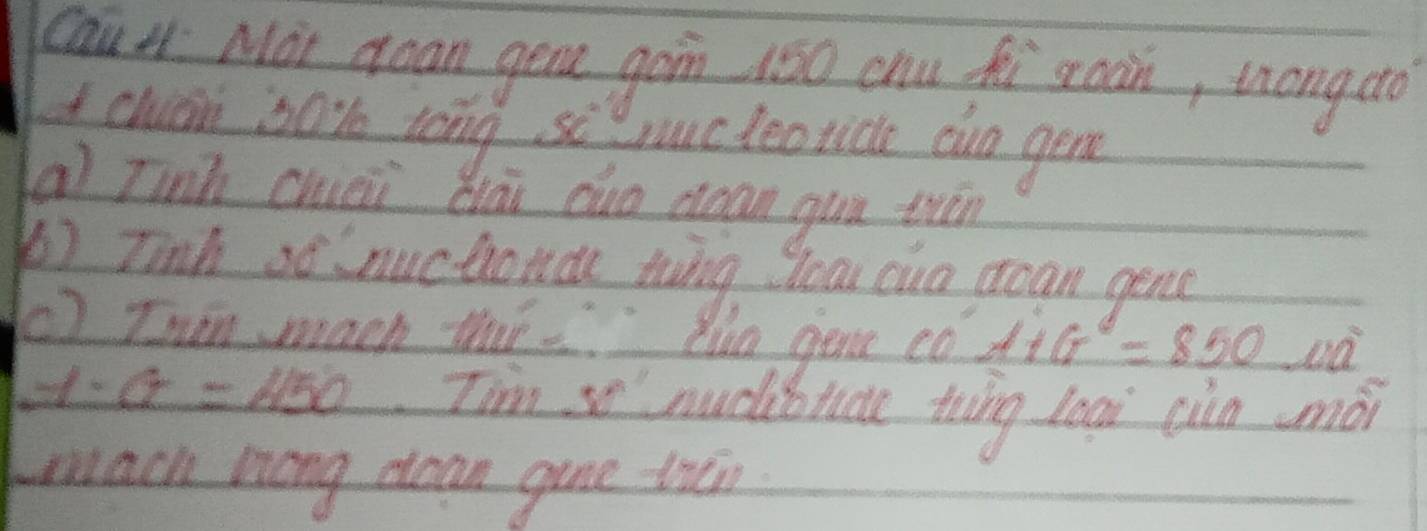 Câu 4: Một đoạn gene gồm 150 chu kì xoắn, trong đó
A chiếm 30% tổng số nucleotide của gene
a) Tính chiều dài của đoạn gene trên
b) Tính số nucleotide từng loại của đoạn gene
c) Trên mạch thứ của gene có A+G = 850 và
A-G = 450. Tìm số nucleotide từng loại của mỗi
mạch trong đoạn gene trên